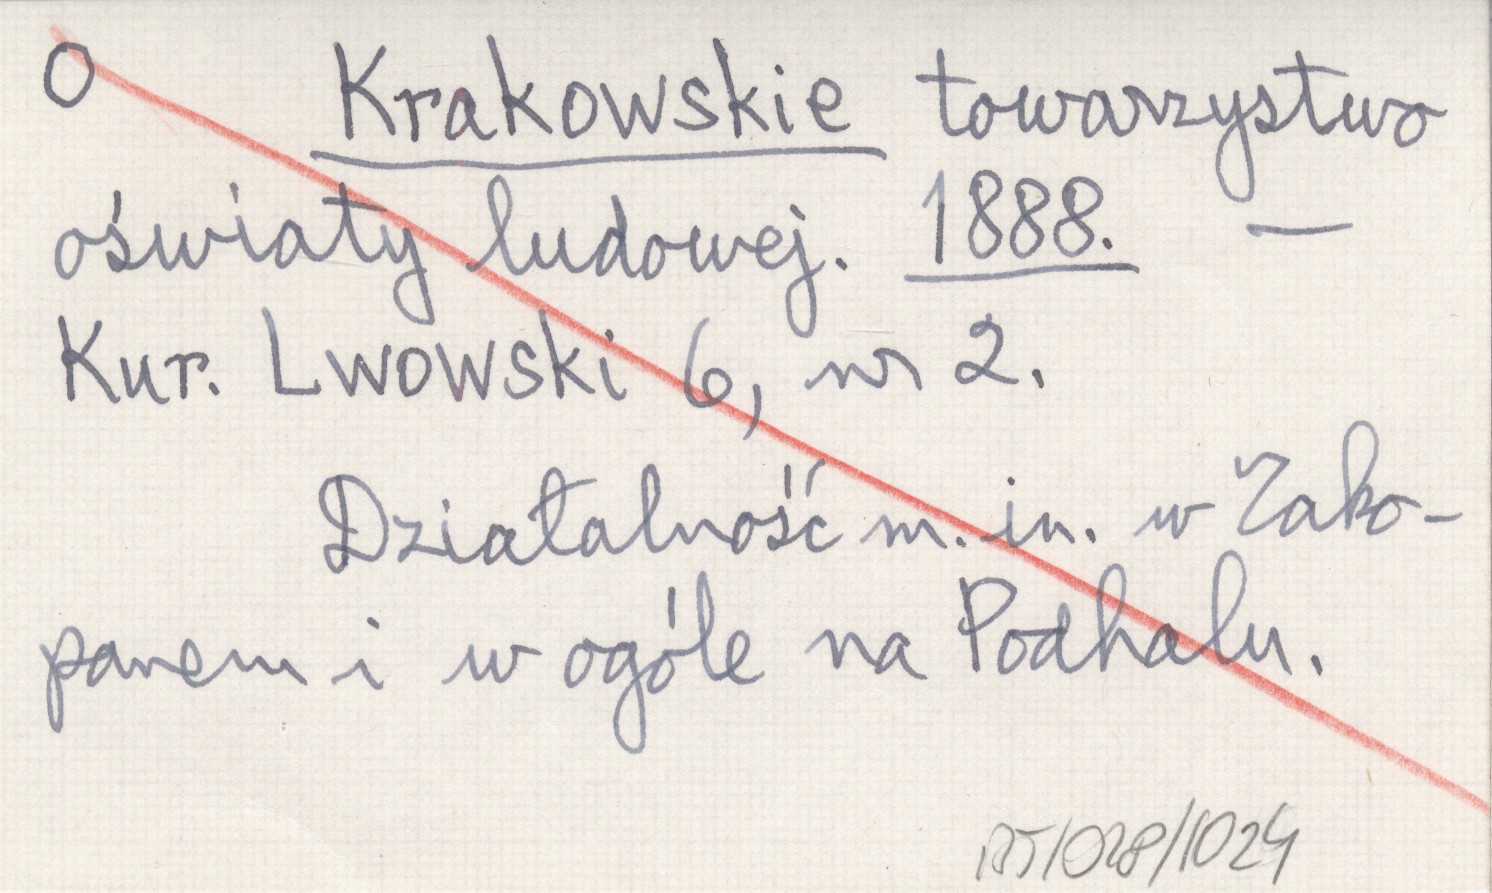 O Krakowskie towarzystwo
oświaty ludowej. 1888. —
Kur. Lwowski 6, nr 2.
Działalność m. in. w Zako-
panem i w ogóle na Podhalu.
/028/1024